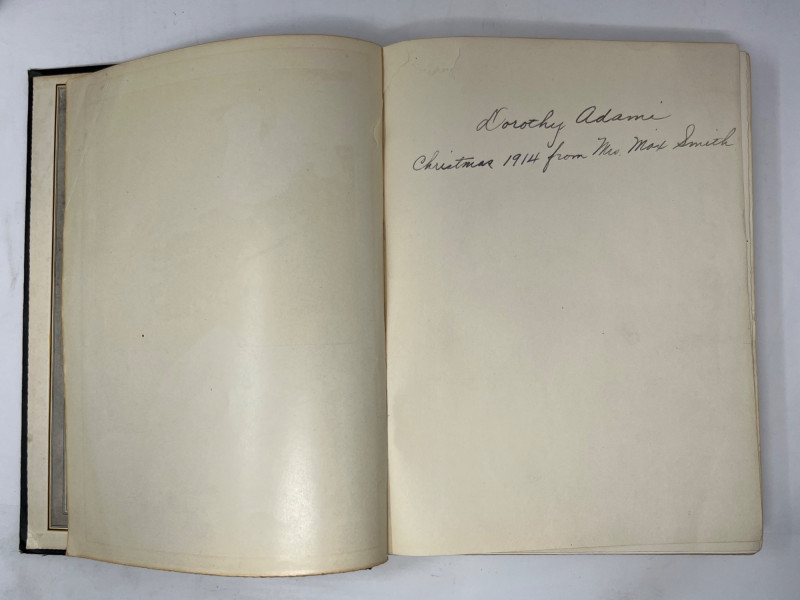 Dorothy Adami
Christmas 1914 from Mrs. Max Smith